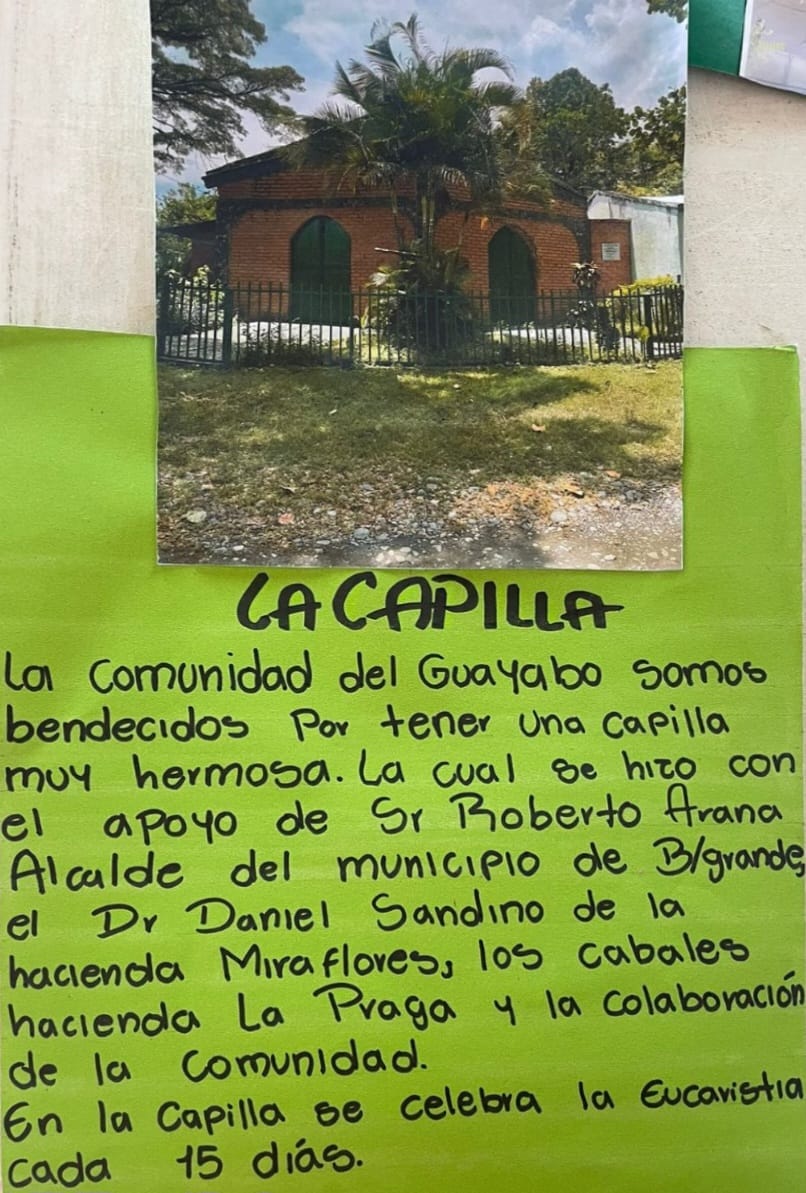 LA CAPILLA
La comunidad del Guayabo somos
bendecidos por tener una capilla
muy hermosa. La cual se hizo con
el apoyo de Sr Roberto Arana
Alcalde del municipio de B/grande,
el Dr Daniel Sandino de la
hacienda Miraflores, los cabales
hacienda La Praga y la colaboración
de la comunidad.
En la Capilla se celebra la Eucaristia
cada 15 diás.